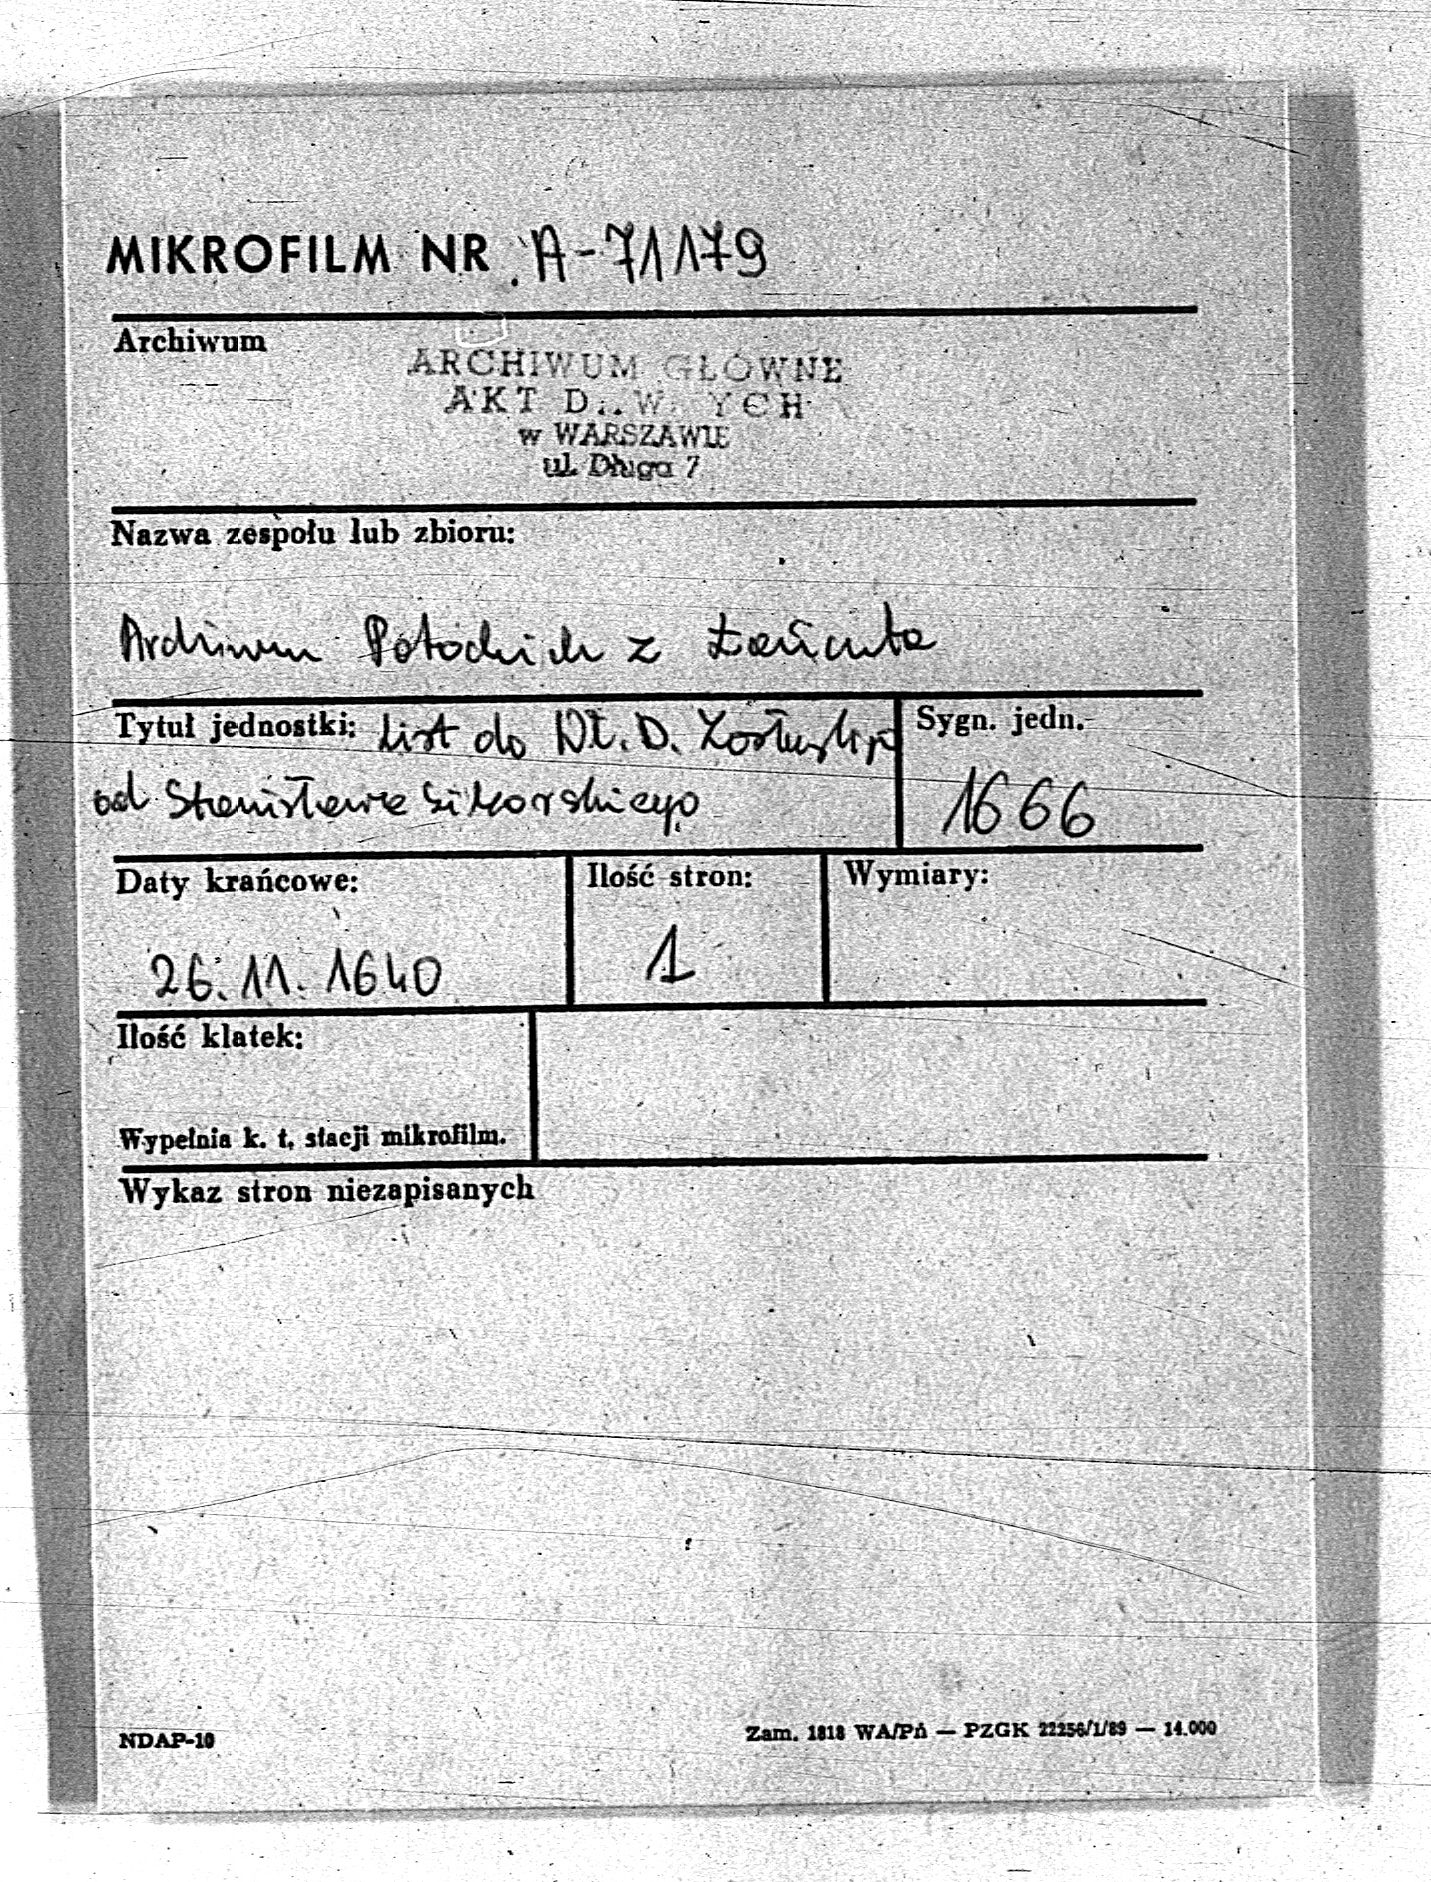 MIKROFILM NR A-71179
Archiwum
ARCHIWUM GŁÓWNE
AKT D..W. YCH
w WARSZAWIE
ul. Długa 7
Nazwa zespołu lub zbioru:
Archiwum Potockich z Łańcuta
Tytuł jednostki: List do Wł. D.
od Stanisława Sikorskiego
Sygn. jedn.
1666
Daty krańcowe:
26.11.1640
Ilość stron:
1
Wymiary:
Ilość klatek:
Wypełnia k. t. stacji mikrofilm.
Wykaz stron niezapisanych
NDAP-10
Zam. 1818 WA/PA — PZGK 22256/1/89 — 14.000